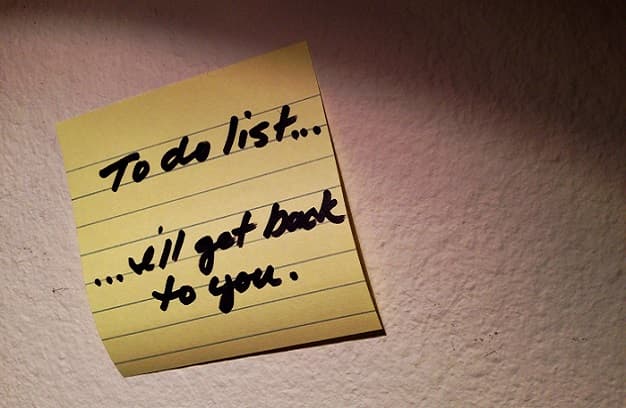 To do list...
...i'll get back
to you.